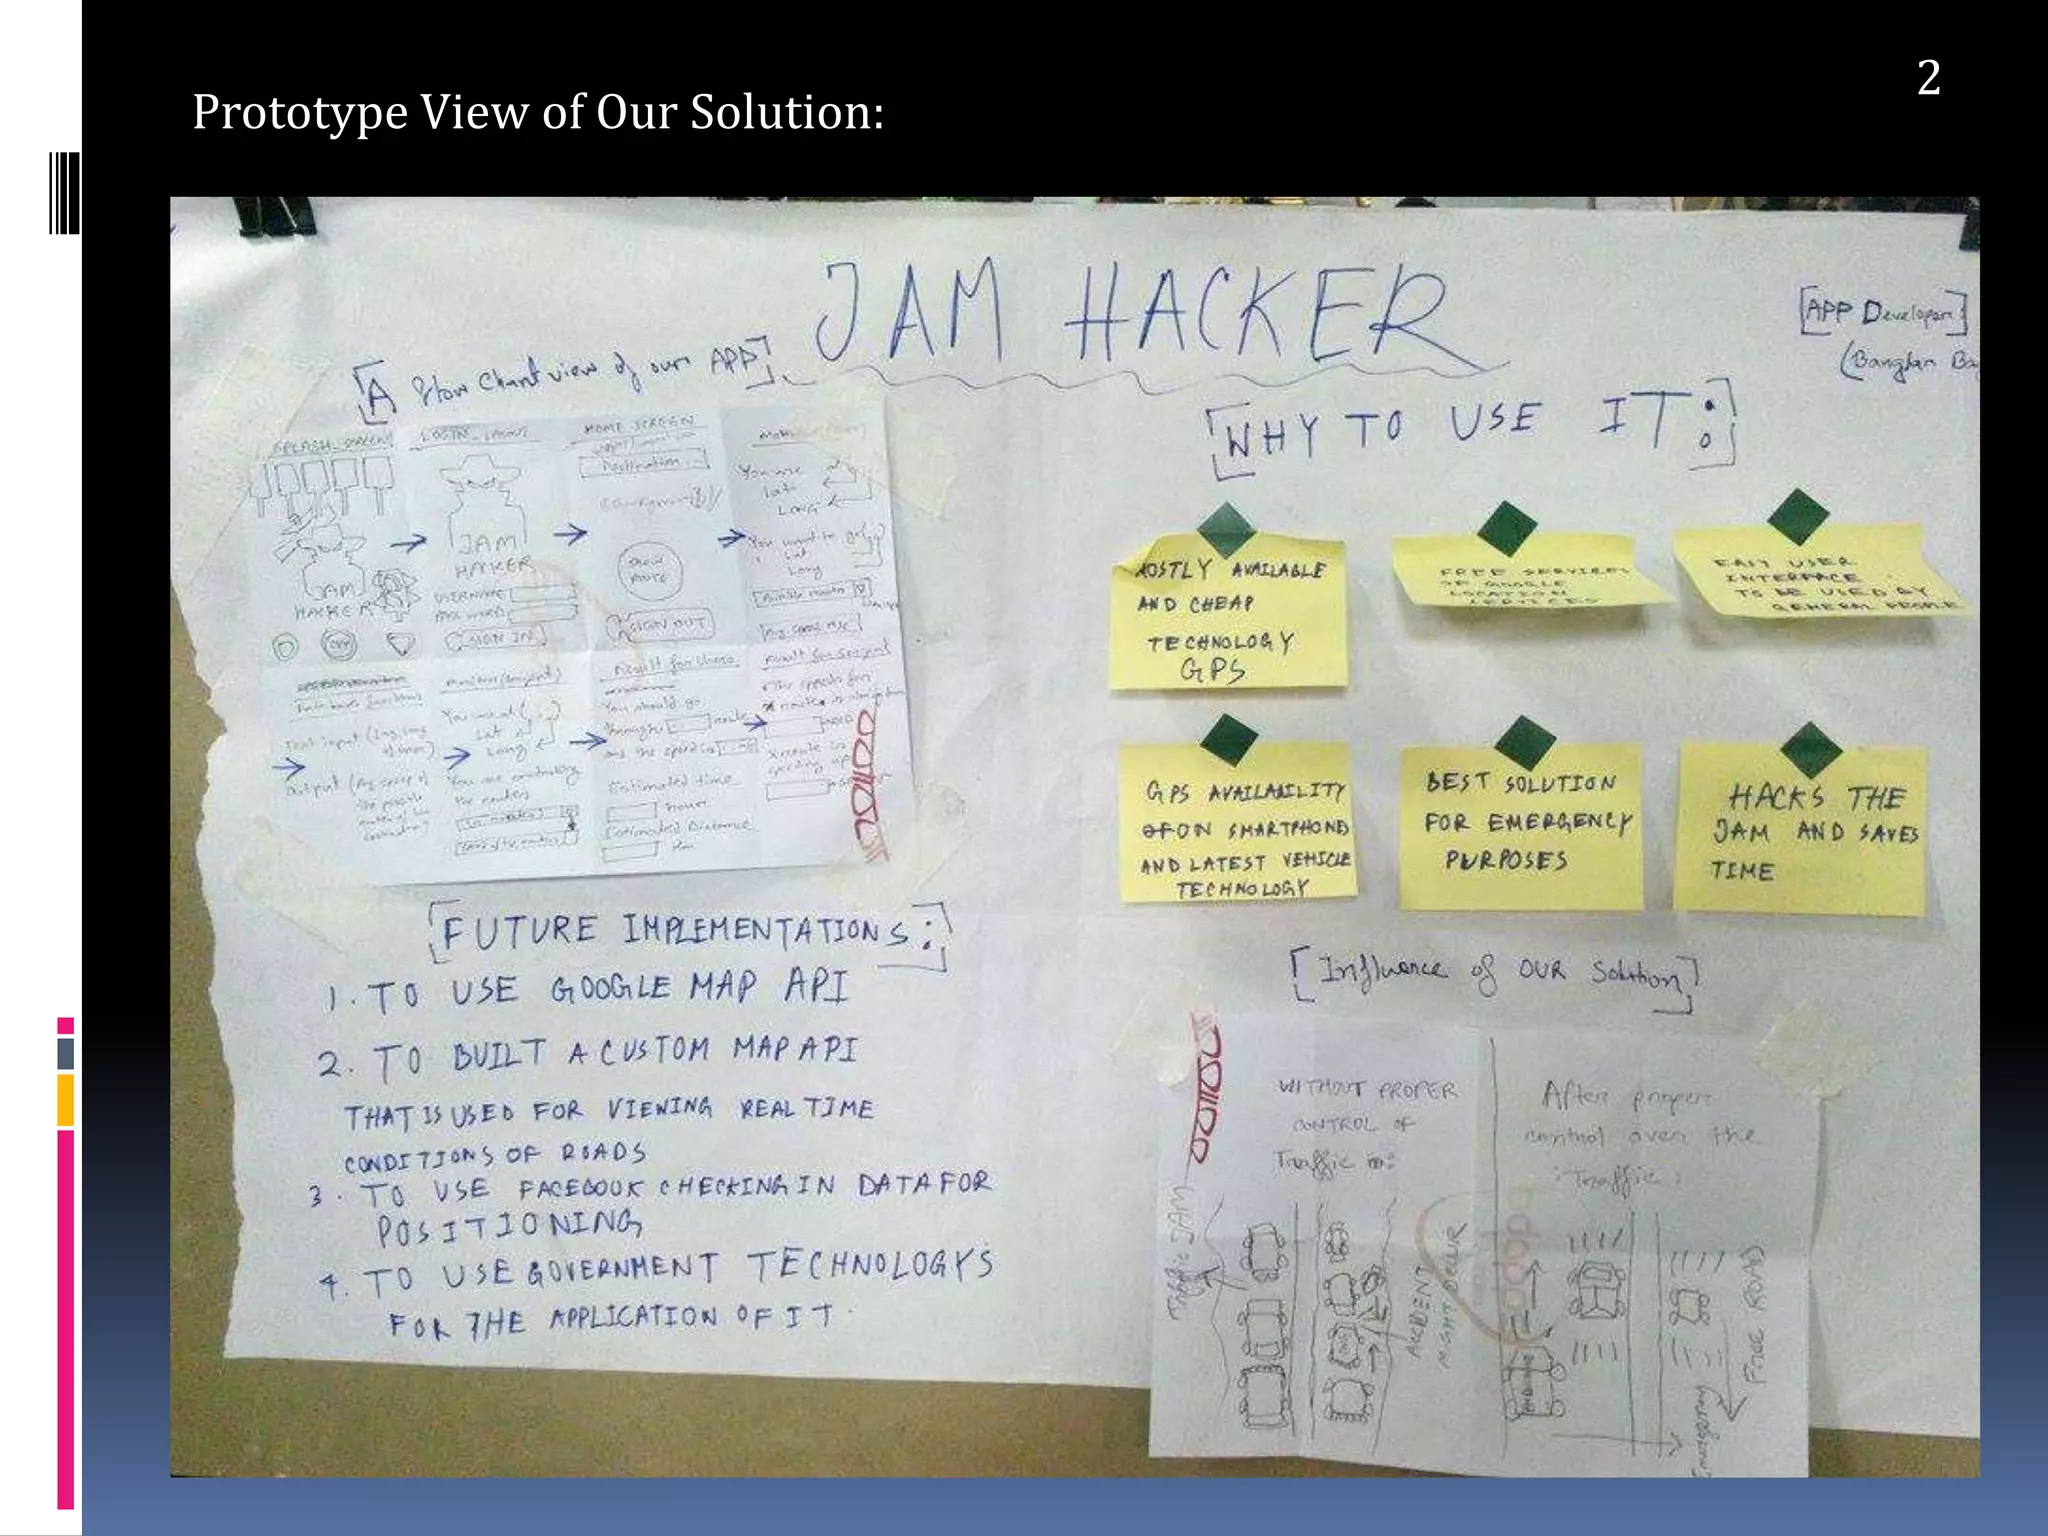 2
Prototype View of Our Solution:
JAM HACKER
[APP Developer:]
[A Flow Chart view of our APP]
SPLASH SCREEN
LOGIN LAYOUT
HOME SCREEN
Destination
You are at
Lat
Long
JAM
HACKER
JAM
HACKER
USERNAME
PASSWORD
SIGN IN
SHOW
ROUTE
SIGN OUT
You want to go
Lat
Long
Result for Users
Result for Sergent
You should go
through route
and the speed is
Estimated time
hour
Estimated Distance
km
You are at
Lat
Long
You are controlling
the routes
[WHY TO USE IT:]
MOSTLY AVAILABLE
AND CHEAP
TECHNOLOGY
GPS
FREE SERVICES
OF GOOGLE
LOCATION
SERVICES
EASY USER
INTERFACE
TO BE USED BY
GENERAL PEOPLE
GPS AVAILABILITY
ON SMARTPHONES
AND LATEST VEHICLE
TECHNOLOGY
BEST SOLUTION
FOR EMERGENCY
PURPOSES
HACKS THE
JAM AND SAVES
TIME
[FUTURE IMPLEMENTATIONS:]
1. TO USE GOOGLE MAP API
2. TO BUILT A CUSTOM MAP API
THAT IS USED FOR VIEWING REAL TIME
CONDITIONS OF ROADS
3. TO USE FACEBOOK CHECKING IN DATA FOR
POSITIONING
4. TO USE GOVERNMENT TECHNOLOGYS
FOR THE APPLICATION OF IT.
[Influence of OUR Solution]
WITHOUT PROPER
CONTROL OF
Traffic in:
After proper
control over the
Traffic:
Traffic JAM
ACCIDENT
MIGHT OCCUR
FREE ROAD
Emergency